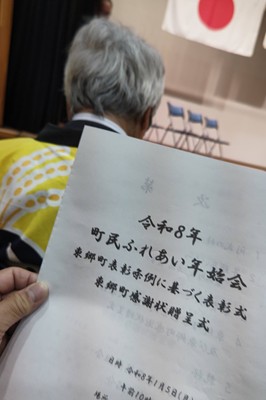 令和8年
町民ふれあい年始会
東郷町表彰条例に基づく表彰式
東郷町感謝状贈呈式
日時 令和8年1月5日(月)
午前10時
場所